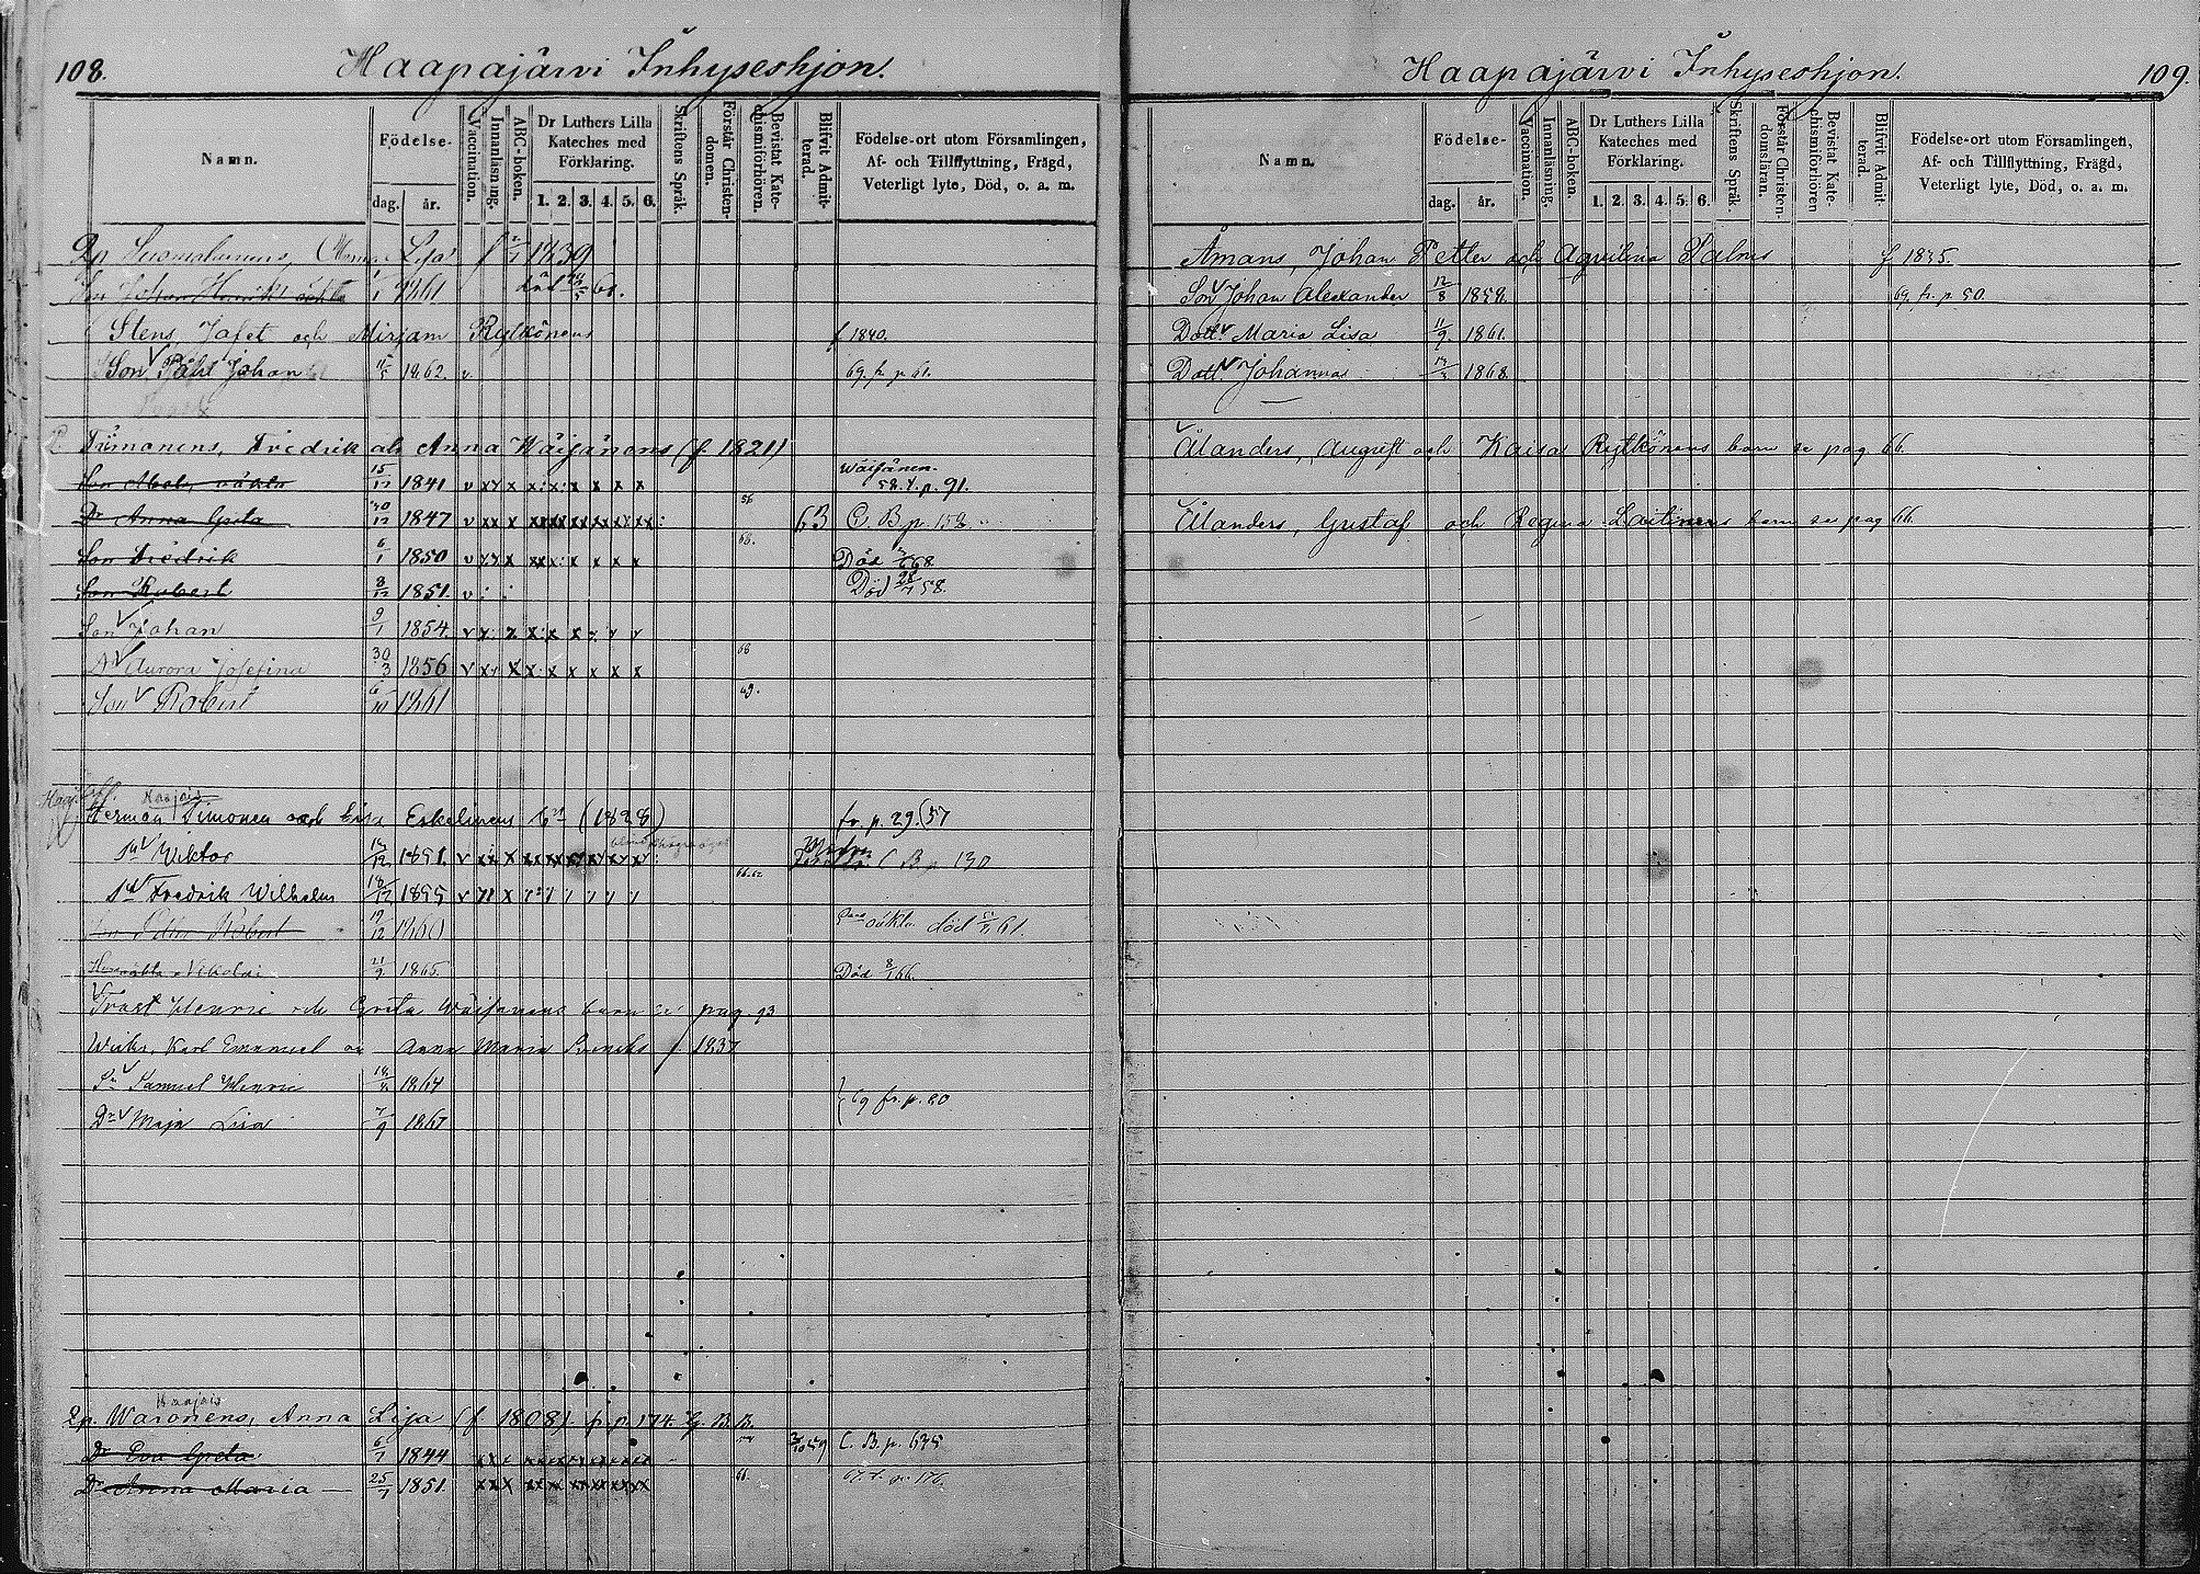 108.
Haapajärvi Inhyseshjon.
Namn.
Födelse-
dag.
år.
Vaccination.
Innanläsning.
ABC-boken.
Dr Luthers Lilla
Kateches med
Förklaring.
1. 2. 3. 4. 5. 6.
Skriftens Språk.
Förstår Christen-
domen.
Bevistat Kate-
chismiförhören.
Blifvit Admit-
terad.
Födelse-ort utom Församlingen,
Af- och Tillflyttning, Frägd,
Veterligt lyte, Död, o. a. m.
Lisa f 1839
Son Johan Henrik oäkta 1861 död
Stens, Jafet och Mirjam Rytkönens f 1840.
Son Påhl Johan 11/5 1862. v. 69. fr. p. 61.
Timonens, Fredrik och Anna Wäisänens (f. 1821)
Son Abel, oäkta 15/12 1841 v x x x x : x : x x x x Wäisänen.
58. t. p. 91.
Dr Anna Greta 30/12 1847 v xx x xx xx xx xx xx xx : 56 63 C. B. p. 152.
Son Fredrik 6/1 1850 v x x x x x x x x 68. Död 68
Son Robert 8/12 1851. v : : Död 28/7 58.
Son Johan 9/1 1854 v x : x x : x x x x x
Dr Aurora Josefina 30/3 1856 v x x x x : x x x x x 68
Son Robert 6/10 1861 69.
Haajais
Herman Timonen och Lisa Eskelinens bn (1828) fr. p. 29. (57
Sn Wiktor 1851. v xx x xx xx xx xx xx C B p 130
Sn Fredrik Wilhelm 18/12 1855 v x x x x x x x x x
Son Petter Robert 19/12 1860 oäkta död 61.
Nikolai 21/9 1865. Död 8/1 66.
Trast Henric och Greta Wäisänens barn se pag. 93
Karl Emanuel o. Anna Maria f. 1837
Sn Samuel Henric 1864
} 69 fr. p. 20
Dr Maja Lisa 7/9 1867
Haajais
Waronens, Anna Lisa (f. 1808). fr. p. 174. G. B. B.
Dr Eva Greta 6/7 1844 3/10 59 C. B. p. 635
Dr Anna Maria 25/7 1851. xx x xx xx xx xx xx xx 66. 67. t. p. 176.
Haapajärvi Inhyseshjon.
109.
Namn.
Födelse-
dag.
år.
Vaccination.
Innanläsning.
ABC-boken.
Dr Luthers Lilla
Kateches med
Förklaring.
1. 2. 3. 4. 5. 6.
Skriftens Språk.
Förstår Christen-
domsläran.
Bevistat Kate-
chismiförhören
Blifvit Admit-
terad.
Födelse-ort utom Församlingen,
Af- och Tillflyttning, Frägd,
Veterligt lyte, Död, o. a. m.
Åmans, Johan Petter och Aqvilina Palms f 1835.
Son Johan Alexander 12/8 1859. 69. fr. p. 50.
Dottr Maria Lisa 11/9 1861.
Dottr Johanna 1868.
Ålanders, August och Kaisa Rytkönens barn se pag 66.
Ålanders, Gustaf och Regina Laitinens barn se pag 66.